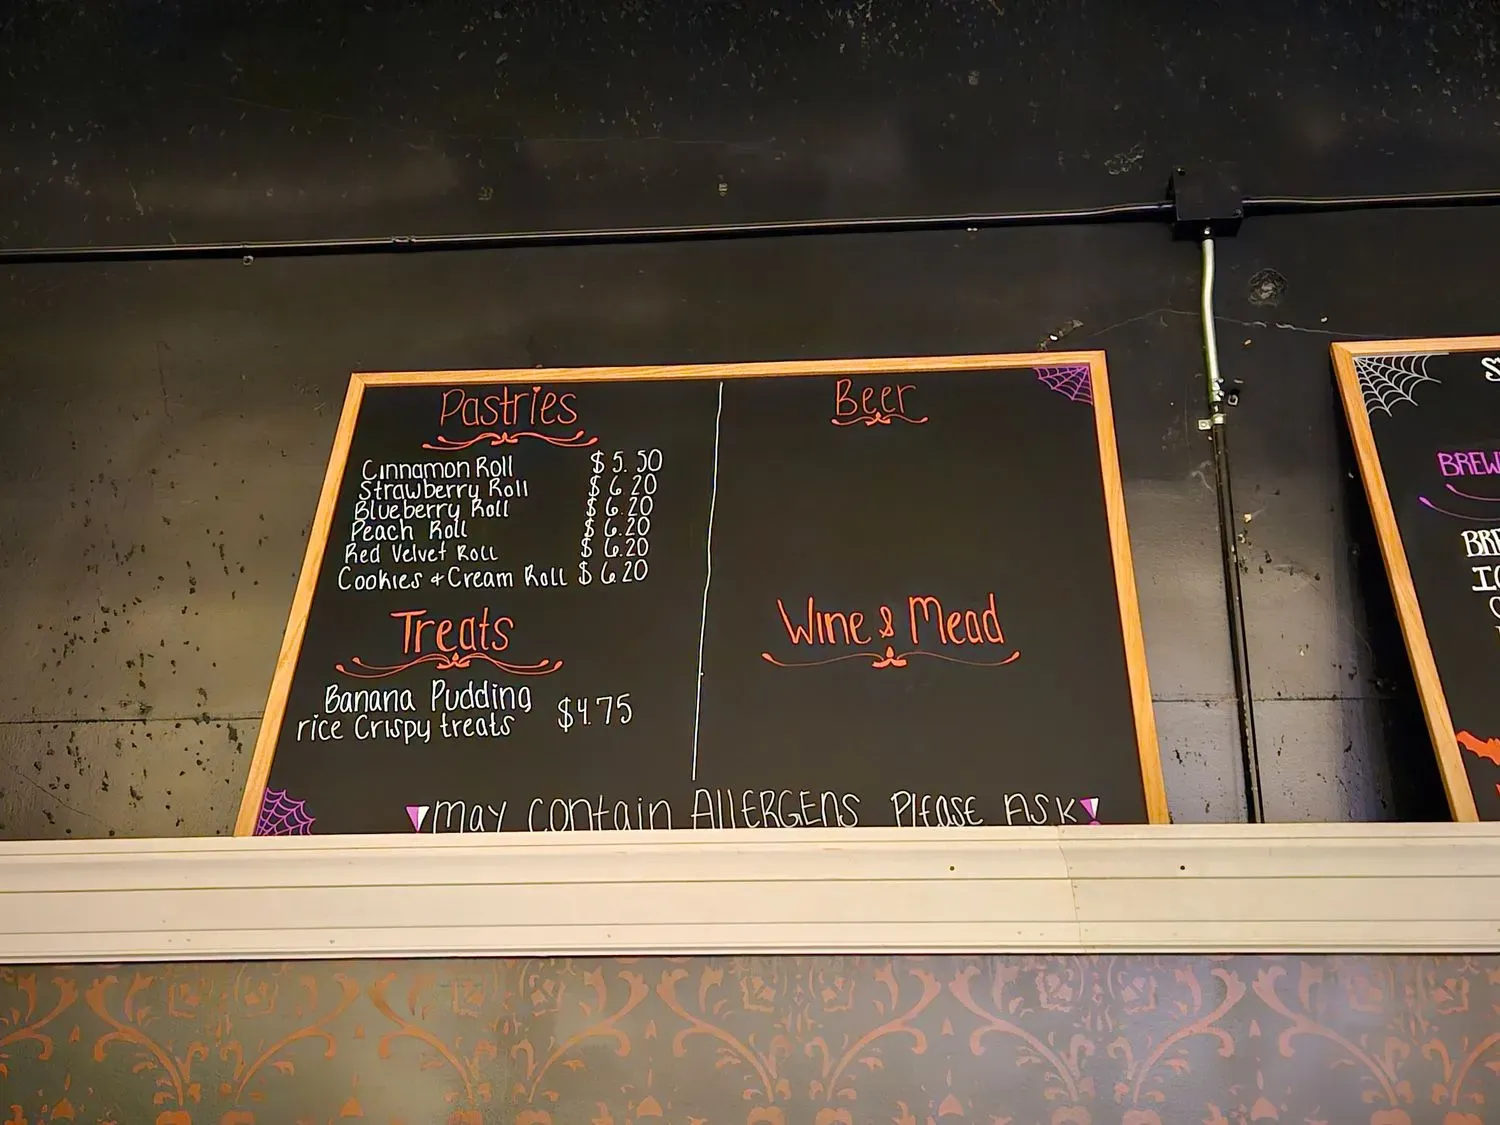 Pastries
Cinnamon Roll $5.50
Strawberry Roll $6.20
Blueberry Roll $6.20
Peach Roll $6.20
Red Velvet Roll $6.20
Cookies & Cream Roll $6.20
Treats
Banana Pudding
rice Crispy treats $4.75
Beer
Wine & Mead
may contain AllERGENS Please ASK